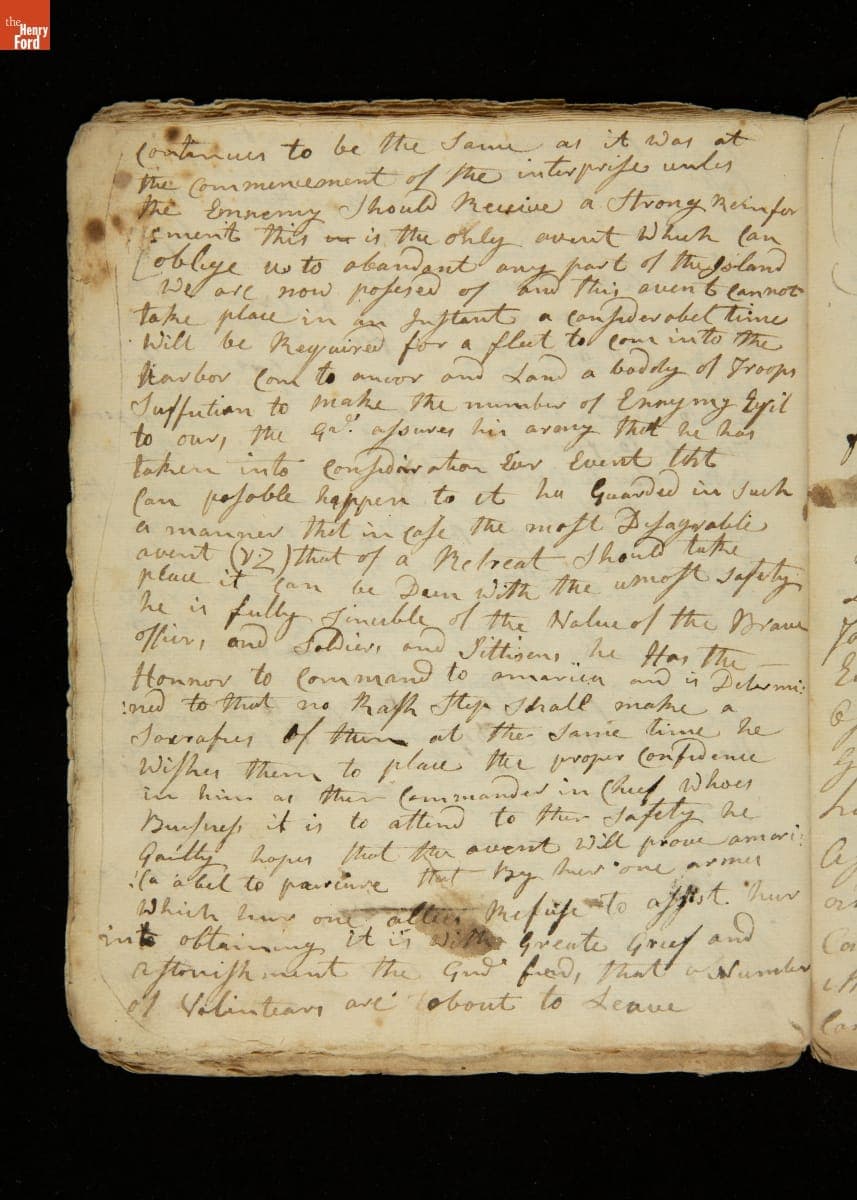 the
Henry
Ford
Continues to be the Same as it was at
the Commencement of the interprise unles
the Ennemy Should Receive a Strong Reinfor
cment this is the only avent Which Can
oblige us to abandant any part of the Island
We are now posesed of and this avent Cannot
take place in an Instant a Considerabel time
Will be Required for a fleet to Com into the
Harbor Com to ancor and Land a baddy of Troops
Suffution to make the number of Ennymy Eqil
to ours, the Gnl. assures his aremy that he has
taken into Consideration Eur Event tht
Can posable happen to it he Guarded in such
a manner that in Case the most Disagrable
avent (viz) that of a Retreat Should take
place it Can be Deun With the umost Safety
he is fully Sinsible of the Value of the Brave
officers and Soldiers and Sittisens he Has the
Honnor to Command to amarica and is Determi:
:ned to that no Rash Step Shall make a
Sacrafies of them at the Same time he
Wishes them to place the proper Confidence
in him as ther Commander in Cheef Whoes
Buesness it is to attend to ther Safety he
Gaitly hopes that the avent Will prove amari:
:Ca abel to parcure that By her one armes
Which her one allies Refuse to assist her
into obtaining it is With Greate Greef and
astonishment the Gnl finds that a Number
of Volintears are about to Leave